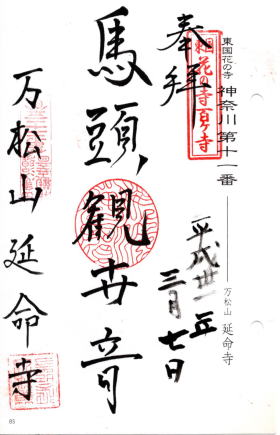 東国花の寺
神奈川 第十一番
万松山 延命寺
奉拝
東国花の寺百ヶ寺
平成卅一年
三月七日
馬頭観世音
万松山 延命寺
85